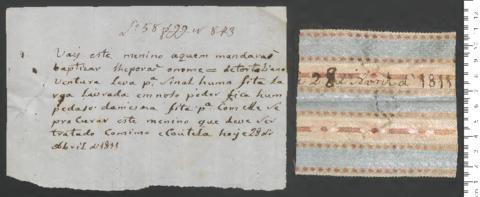 Nº 58 f 99 v 843
Vaij este menino aquem mandaraõ
baptizar lheporaõ onome =
Ventura leva pª Sinal huma fita la
rga lavrada emnoso poder fica hum
pedaso damesma fita pª Com elle se
procurar este menino que deve ser
tratado Com mimo e Coutela hoje 28 di
Abril d 1811
28 d 1811